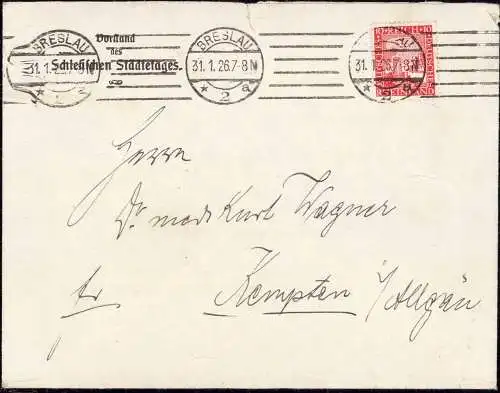 BRESLAU
31.1.26.7-8N
* 2 a
Vorstand
des
Schlesischen Städtetages.
BRESLAU
31.1.26.7-8N
* 2 a
BRESLAU
31.1.26.7-8N
* 2 a
10 10
Herrn
Dr. med. Kurt Wagner
fr Kempten i/Allgäu